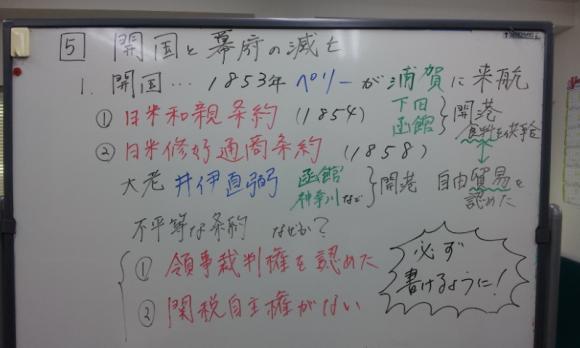 5 開国と幕府の滅亡
1. 開国…1853年ペリーが浦賀に来航
① 日米和親条約 (1854) 下田 函館 } 開港 食料を供給
② 日米修好通商条約 (1858)
大老 井伊直弼 函館 神奈川など } 開港 自由貿易を認めた
不平等な条約 なぜか?
① 領事裁判権を認めた
② 関税自主権がない
必ず
書けるように!